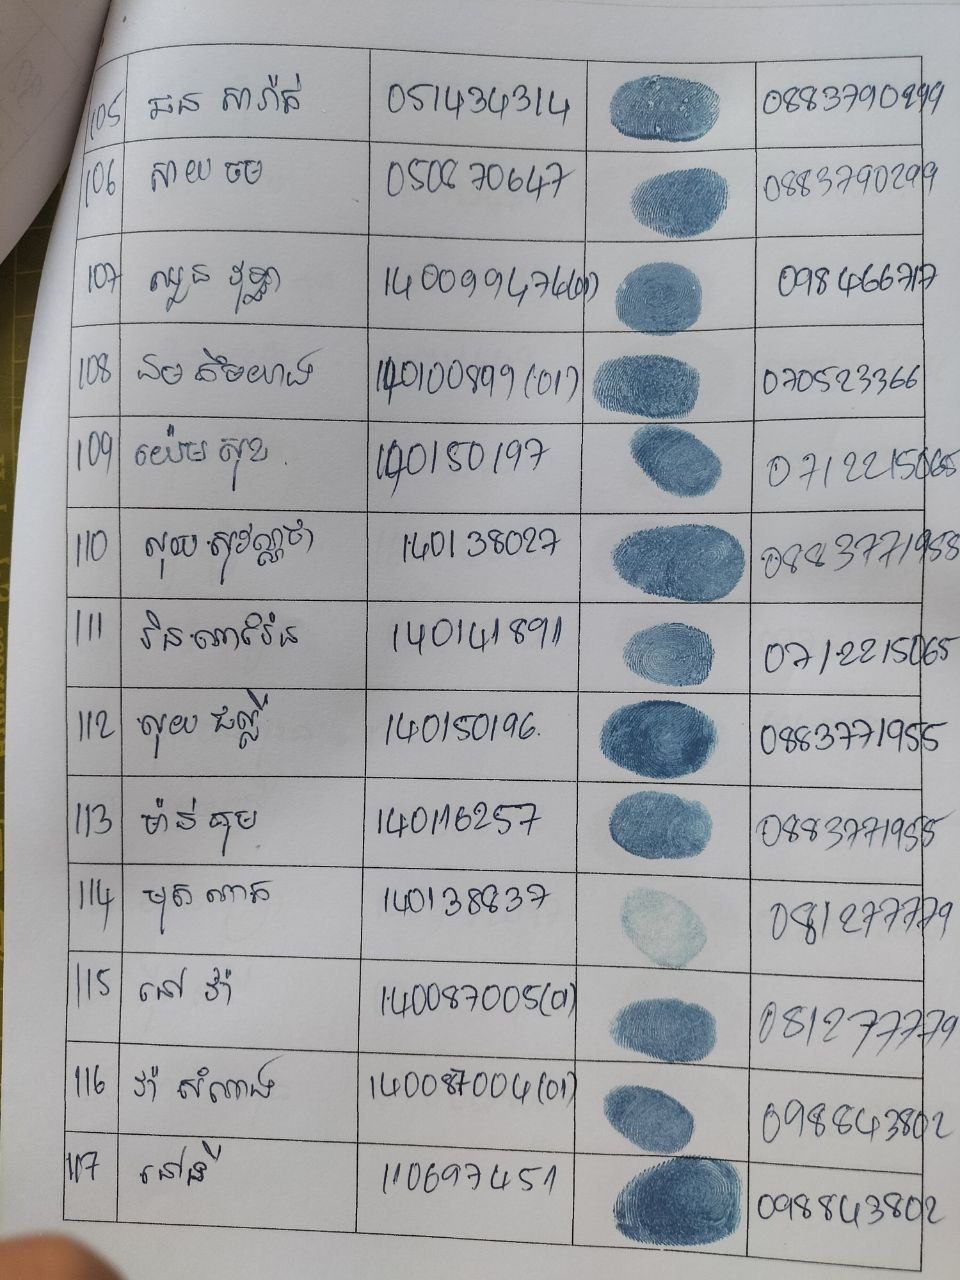 105 ផន សារ៉ាត់ 051434314 0883790299
106 សាយ ចម 050870647 0883790299
107 ឈួន វុទ្ធា 140099476(01) 098466717
108 គឹមយាង 140100899(01) 070523366
109 យ៉េម សុខ 140150197 0712215065
110 សុយ សុវណ្ណថា 140138027 0883771958
111 រិន 140141891 0712215065
112 សុយ ផល្លី 140150196. 0883771955
113 ម៉ាន់ គុម 140116257 0883771955
114 មុត ណាត 140138837 081277779
115 នៅ វ៉ា 140087005(01) 081277779
116 វ៉ា សំណាង 140087004(01) 098843802
117 នៅ នី 110697451 098843802